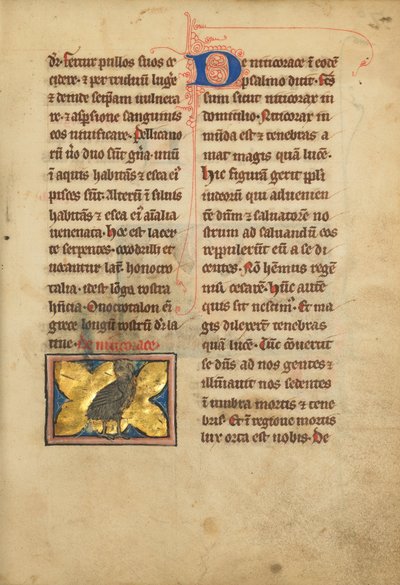 dr̄. Fertur pullos suos oc
cidere. & per triduum luge
& deinde seip̄am vulnera
re. & aspsione sanguinis
eos vivificare. Pellicano
rū ṽo duo sūt gn̄a. unū
ī aquis habitās & esca ei
pisces sūt. Alterū ī silvis
habitās & esca ei aīalia
venenata. hoc est lacer
te serpentes. cocodrilli et
vocantur lat̄. honocro
talia. id est lōga rostra
hn̄cia. Onocrotalon eī
grece longū rostrū dr̄ la
tine. De nicticorace.
De nicticorace ī eodē
psalmo dicit. Fc̄s
sum sicut nicticorax in
domicilio. Nicticorax in
mūda est & tenebras a
mat magis quā lucē.
hic figuram gerit ppl̄i
iudeorū qui advenien
tē dn̄m & salvatorē no
strum ad salvandū eos
reppulerūt eū a se di
centes. Nō hēmus regē
nisi cesarē. hūc autē
quis sit nescim᷒. Et ma
gis dilexerūt tenebras
quā lucē. Tūc convertit
se dn̄s ad nos gentes &
illūīavit nos sedentes
ī umbra mortis & tene
bris. Et ī regione mortis
lux orta est nobis. De